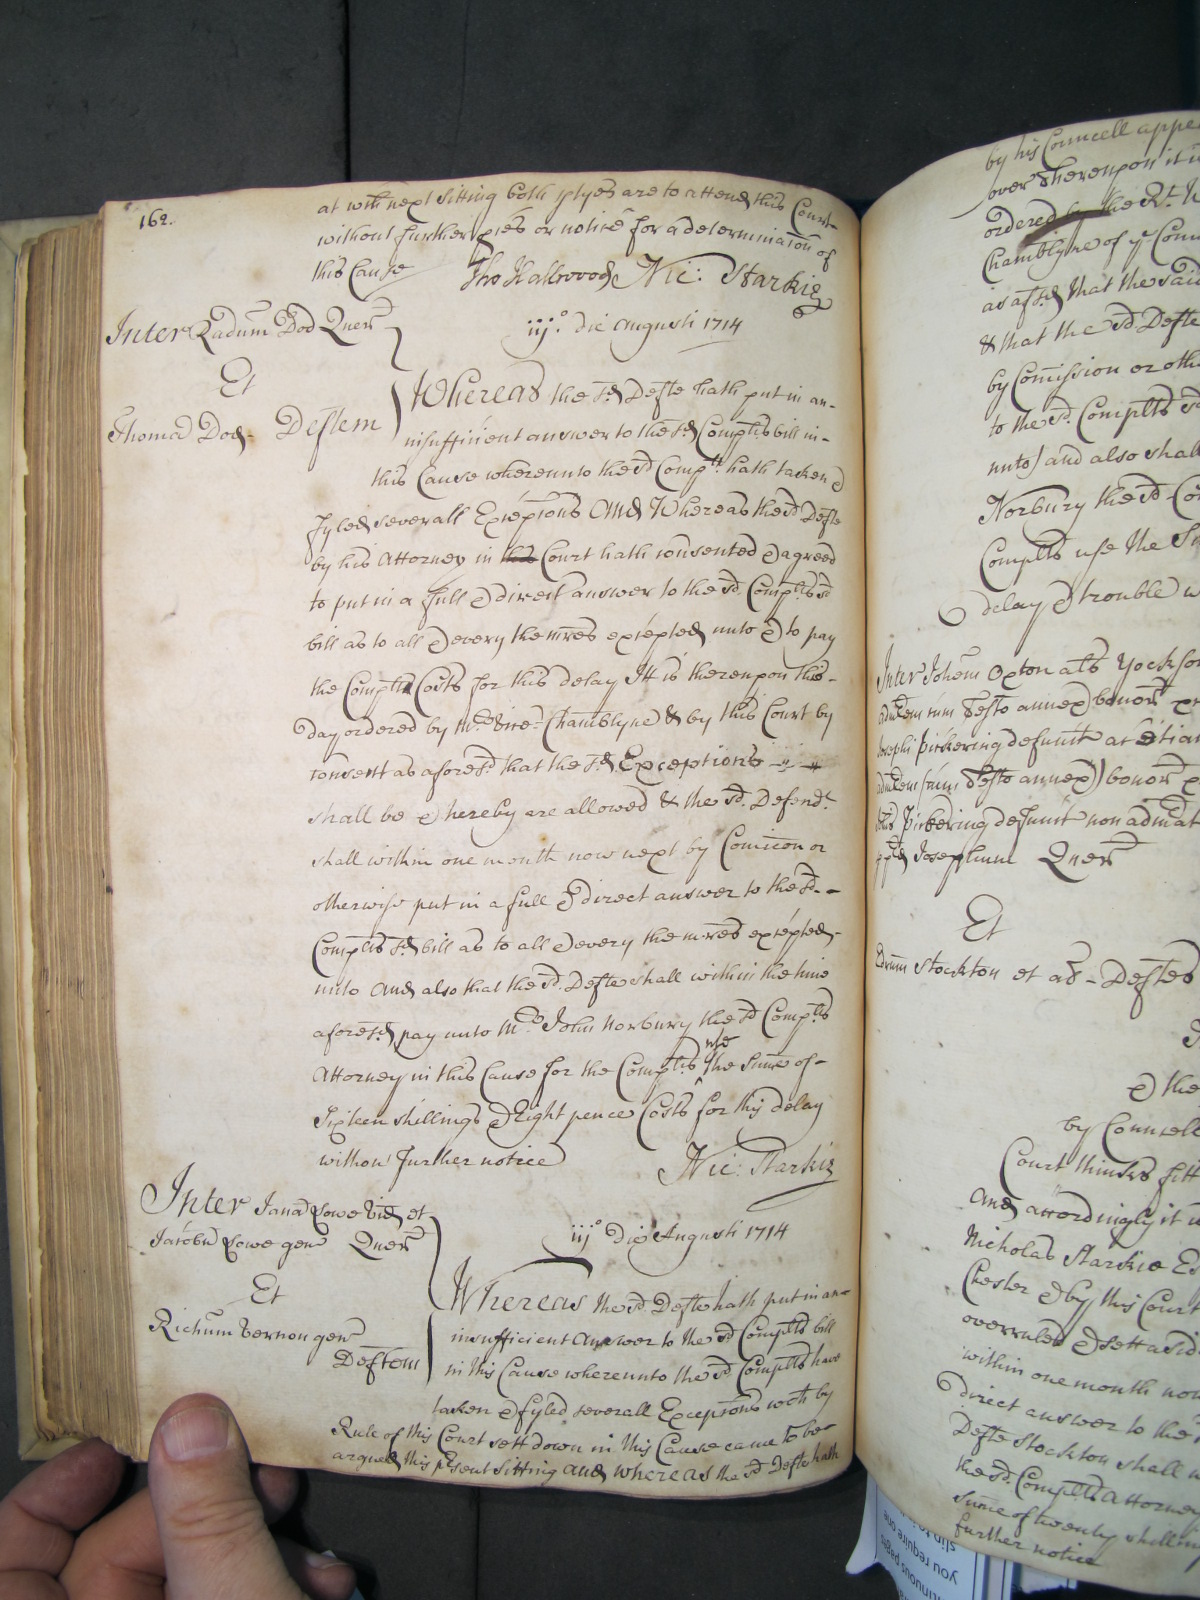 162.
at wch next sitting both ptyes are to attend this Court
without further pres or notice for a determinacon of
this Cause Tho Hallowood Nic: Starkie
Inter Radum Dod Quer
iij° die Augusti 1714
Et
Thomã Dod - Deftem
Whereas the sd Defte hath put in an-
insufficient answer to the sd Complts bill in-
this Cause whereunto the sd Complt hath taken &
fyled severall Excepcons And Whereas the sd Defte
by his Attorney in this Court hath consented & agreed
to put in a full & direct answer to the sd Complts sd
bill as to all & every the mres excepted unto & to pay
the Complts Costs for this delay Itt is thereupon this-
day ordered by Mr Vice-Chamblyne & by this Court by
consent as aforesd that the sd Exceptions
shall be & hereby are allowed & the sd Defendt
shall within one month now next by Comicon or
otherwise put in a full & direct answer to the sd-
Complts sd bill as to all & every the mres excepted-
unto And also that the sd Defte shall within the time
aforesd pay unto Mr John Norbury the sd Complts
Attorney in this Cause for the Complts use the Sume of-
Sixteen shillings & Eight pence Costs for this delay
withou further notice Nic: Starkie
Inter Janã Lowe vid et
Jacobu Lowe gen Quer
iij° die Augusti 1714
Et
Richum Vernon gen
Deftem
Whereas the sd Defte hath put in an-
insufficient Answer to the sd Complts bill
in this Cause whereunto the sd Complts have
taken & fyled severall Excepcons wch by
Rule of this Court sett down in this Cause came to be
argued this psent sitting And whereas the sd Defte hath
by his Councell appe
over Thereupon it is
ordered by the Rt
Chamblyne of ye Coun
as afsd that the said
& that the sd Defte
by Comission or oth
to the sd Complts sd
unto) and also shall
Norbury the sd Co
Complts use the S
delay & trouble w
Inter Johem Oxton als
admcem cum Testo annex bonor
Josephi Pickering defunct ac Etiam
admcem (cum Testo annex) bonor
Pickering defunct non admat
Josephum Quer
Et
Stockton et al - Deftes
& the
by Councell
Court thinks fitt
And accordingly it
Nicholas Starkie Es
Chester & by this Court
overruled & sett asid
within one month now
direct answer to the
Defte Stockton shall
the sd Complts Attorney
sume of twenty shilling
further notice
slip to
you require one
ntinuous pages